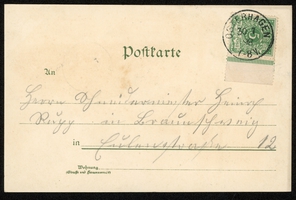 Postkarte
An
Herrn Schneidermeister Heinrich
Rupp in Braunschweig
in Eulenstraße 12
Wohnung
(Straße und Hausnummer)